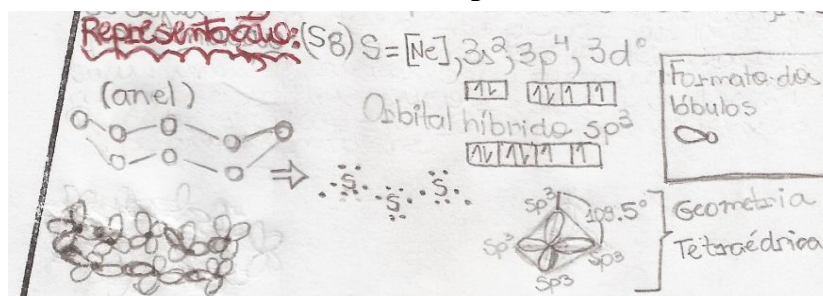 Representação: (S8) S = [Ne], 3s², 3p⁴, 3d⁰
(anel)
↑↓ ↑↓ ↑ ↑
Orbital híbrido sp³
↑↓ ↑↓ ↑ ↑
Formato dos
lóbulos
S S S
sp³ 109.5°
sp³ sp3
sp3
Geometria
Tetraédrica